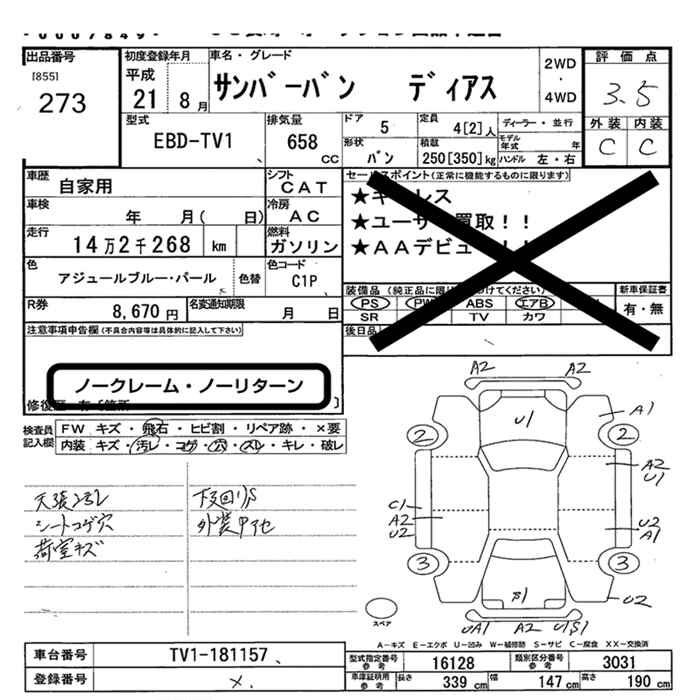 出品番号
[855]
273
初度登録年月
平成
21 8月
車名・グレード
サンバーバン ディアス
2WD
・
4WD
評価点
3.5
外装 内装
C C
型式
EBD-TV1
排気量
658 cc
ドア 5
定員 4[2]人
形状 バン
積載 250[350]kg
ディーラー・並行
モデル年式 年
ハンドル 左・右
車歴
自家用
シフト
CAT
車検
年 月( 日)
冷房
AC
走行
14万2千268 km
燃料
ガソリン
色
アジュールブルー・パール
色替
色コード
C1P
R券
8,670円
名変通知期限
月 日
セールスポイント(正常に機能するものに限ります)
★キーレス
★ユーザー買取!!
★AAデビュー!!
装備品
PS PW ABS エアB
SR TV カワ
新車保証書
有・無
後日品
注意事項申告欄(不具合内容等は具体的に記入して下さい)
ノークレーム・ノーリターン
検査員
記入欄
FW キズ・飛石・ヒビ割・リペア跡・×要
内装 キズ・汚レ・コゲ・穴・スレ・キレ・破レ
天張ヨゴレ
シートコゲ穴
荷室キズ
下回りS
A2 A2
U1
A1
2 2
A2
U1
C1
A2
U2
U2
A1
3 3
B1
U2
UA1 A2 U1S1
スペア
A-キズ E-エクボ U-凹み W-補修跡 S-サビ C-腐食 XX-交換済
車台番号
TV1-181157
登録番号
×
型式指定番号
参考
16128
類別区分番号
参考
3031
車庫証明用
参考
長さ 339cm 幅 147cm 高さ 190cm